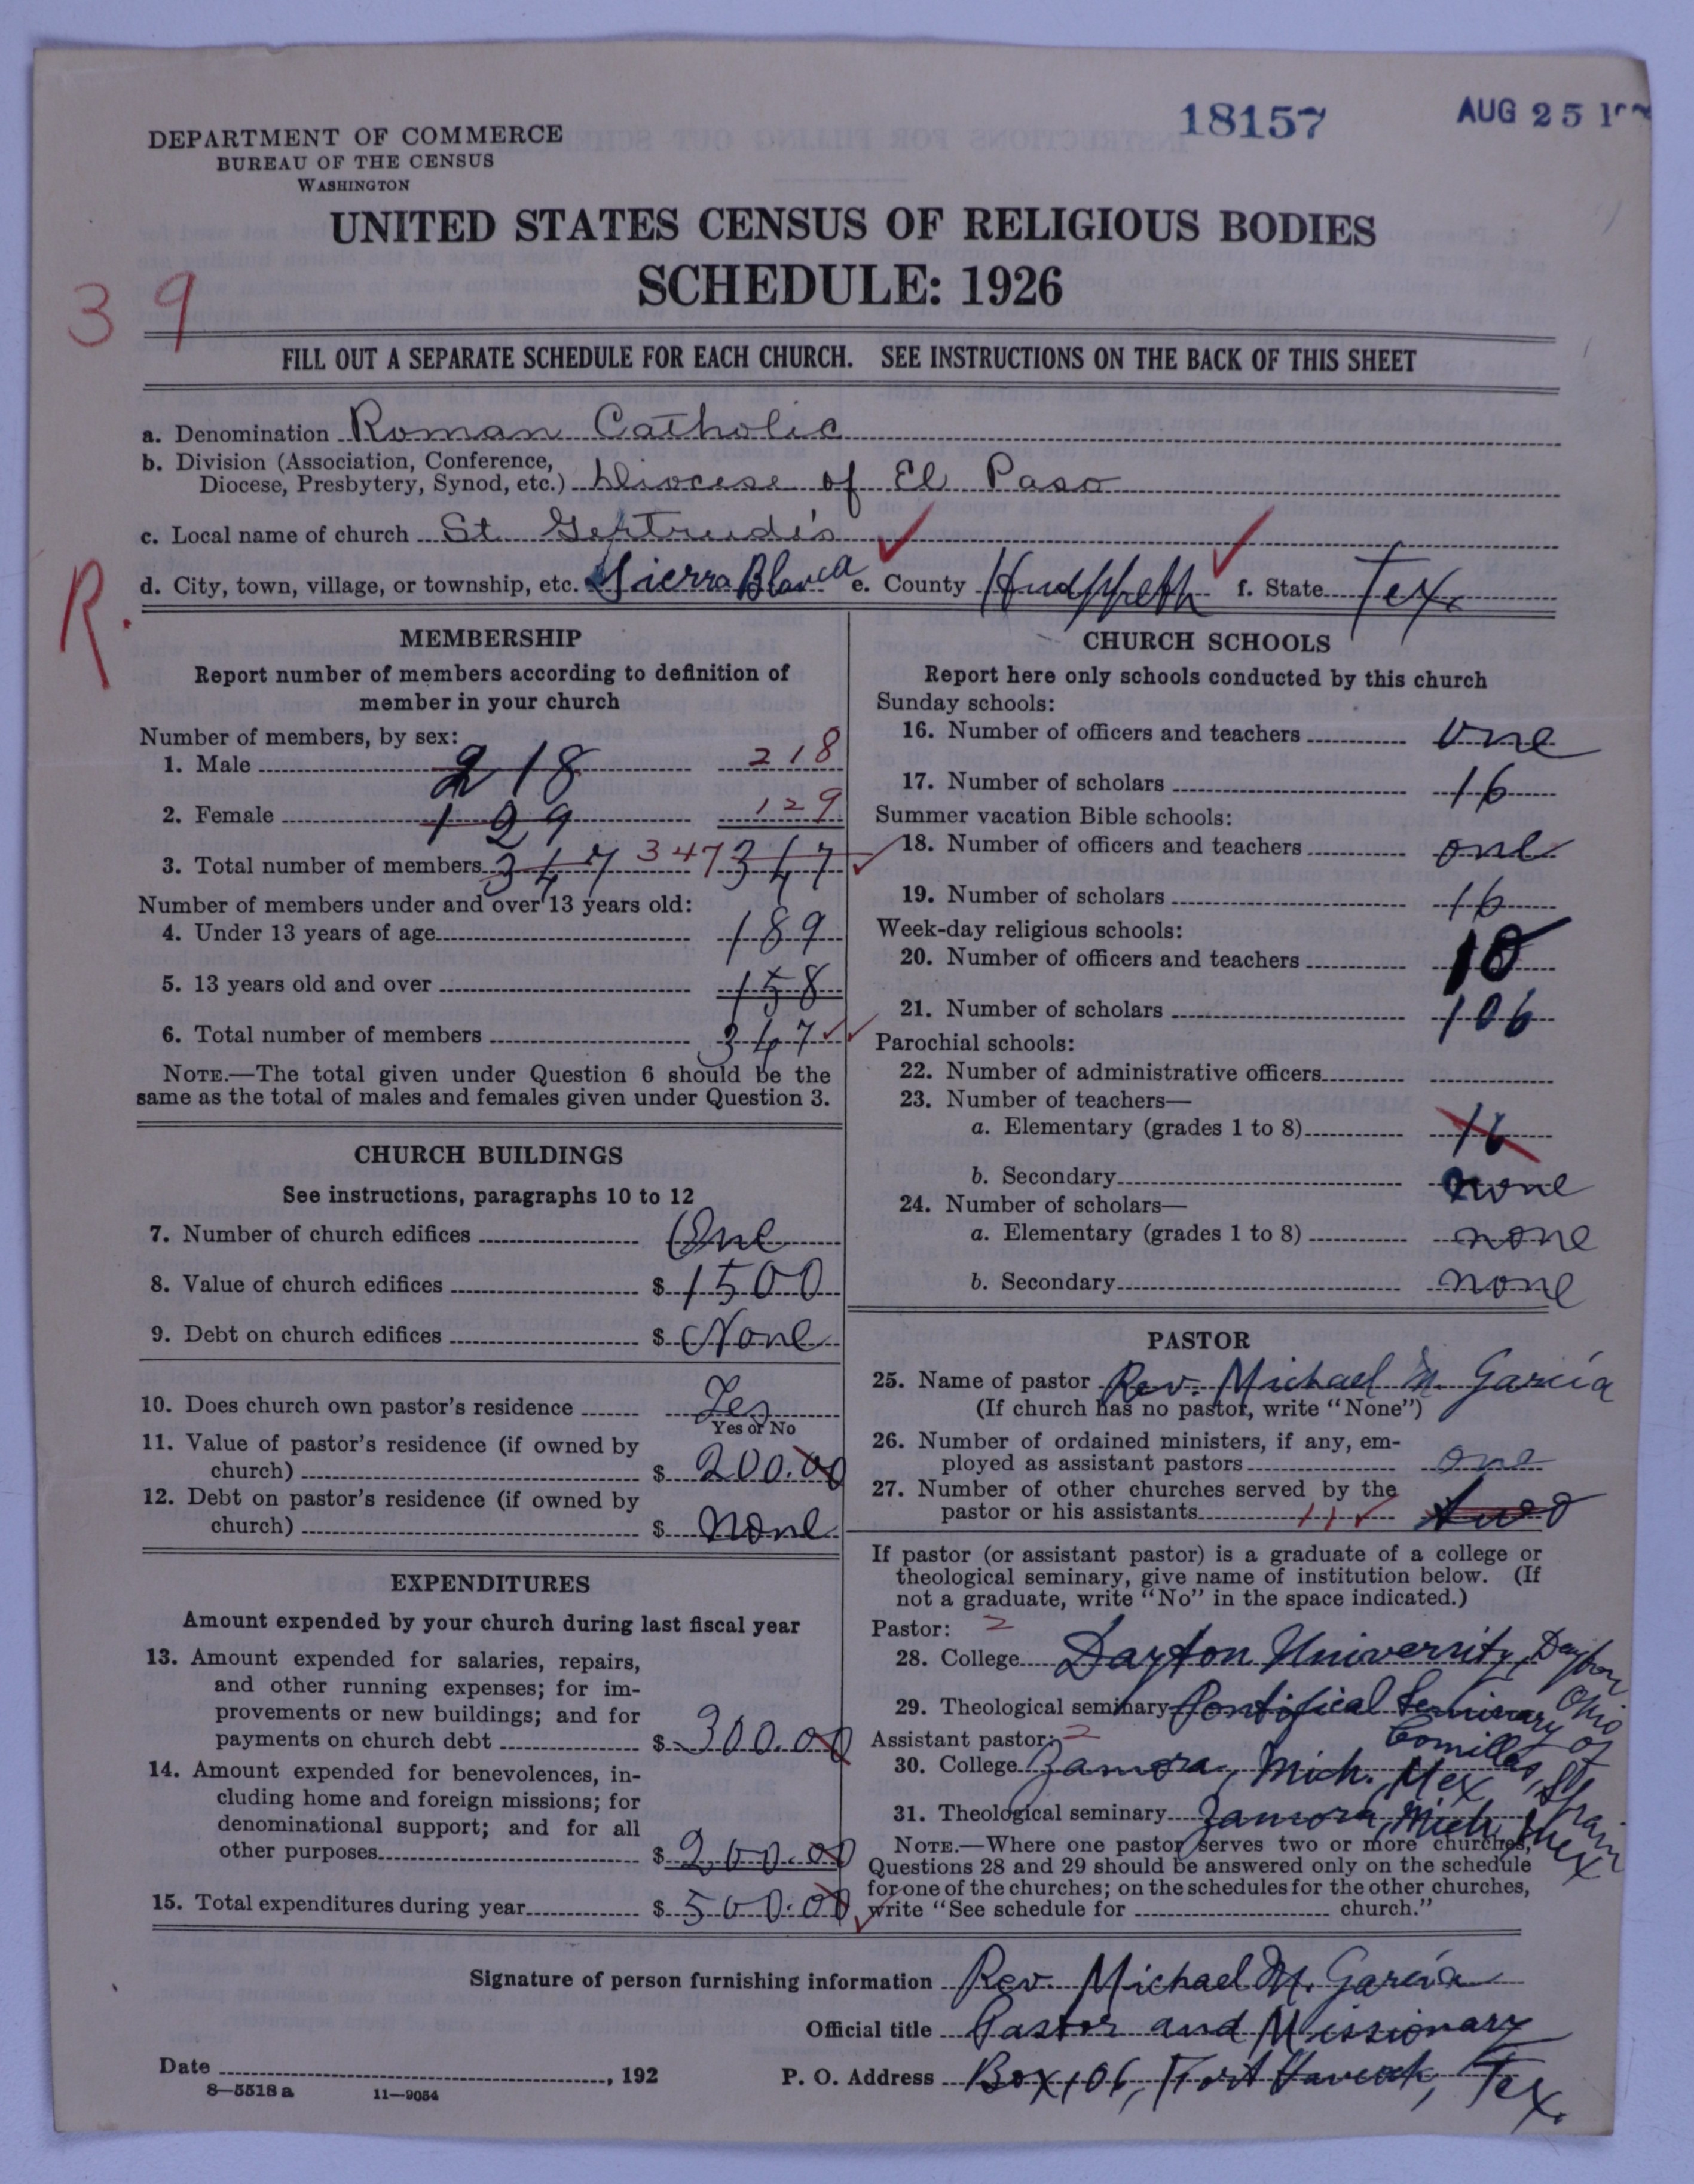 18157
AUG 25
DEPARTMENT OF COMMERCE
BUREAU OF THE CENSUS
WASHINGTON
UNITED STATES CENSUS OF RELIGIOUS BODIES
SCHEDULE: 1926
39
FILL OUT A SEPARATE SCHEDULE FOR EACH CHURCH. SEE INSTRUCTIONS ON THE BACK OF THIS SHEET
a. Denomination Roman Catholic
b. Division (Association, Conference,
Diocese, Presbytery, Synod, etc.) Diocese of El Paso
c. Local name of church St. Gertrude's
d. City, town, village, or township, etc. Sierra Blanca e. County Hudspeth f. State Tex.
R.
MEMBERSHIP
Report number of members according to definition of
member in your church
Number of members, by sex:
1. Male 218 218
2. Female 129 129
3. Total number of members 347 347 347
Number of members under and over 13 years old:
4. Under 13 years of age 189
5. 13 years old and over 158
6. Total number of members 347
NOTE.—The total given under Question 6 should be the
same as the total of males and females given under Question 3.
CHURCH BUILDINGS
See instructions, paragraphs 10 to 12
7. Number of church edifices One
8. Value of church edifices $ 1500
9. Debt on church edifices $ None
10. Does church own pastor's residence Yes
Yes or No
11. Value of pastor's residence (if owned by
church) $ 200.00
12. Debt on pastor's residence (if owned by
church) $ none
EXPENDITURES
Amount expended by your church during last fiscal year
13. Amount expended for salaries, repairs,
and other running expenses; for im-
provements or new buildings; and for
payments on church debt $ 300.00
14. Amount expended for benevolences, in-
cluding home and foreign missions; for
denominational support; and for all
other purposes $ 200.00
15. Total expenditures during year $ 500.00
CHURCH SCHOOLS
Report here only schools conducted by this church
Sunday schools:
16. Number of officers and teachers one
17. Number of scholars 16
Summer vacation Bible schools:
18. Number of officers and teachers one
19. Number of scholars 16
Week-day religious schools:
20. Number of officers and teachers 10
21. Number of scholars 106
Parochial schools:
22. Number of administrative officers
23. Number of teachers—
a. Elementary (grades 1 to 8) 16
b. Secondary none
24. Number of scholars—
a. Elementary (grades 1 to 8) none
b. Secondary none
PASTOR
25. Name of pastor Rev. Michael M. García
(If church has no pastor, write "None")
26. Number of ordained ministers, if any, em-
ployed as assistant pastors one
27. Number of other churches served by the
pastor or his assistants 11 two
If pastor (or assistant pastor) is a graduate of a college or
theological seminary, give name of institution below. (If
not a graduate, write "No" in the space indicated.)
Pastor: 2
28. College Dayton University, Dayton Ohio
29. Theological seminary Pontifical Seminary of Comillas, Spain
Assistant pastor: 2
30. College Zamora, Mich. Mex
31. Theological seminary Zamora, Mich, Mex
NOTE.—Where one pastor serves two or more churches,
Questions 28 and 29 should be answered only on the schedule
for one of the churches; on the schedules for the other churches,
write "See schedule for church."
Signature of person furnishing information Rev. Michael M. García
Official title Pastor and Missionary
Date , 192 P. O. Address Box 106, Fort Hancock, Tex.
8—5518 a 11—9054